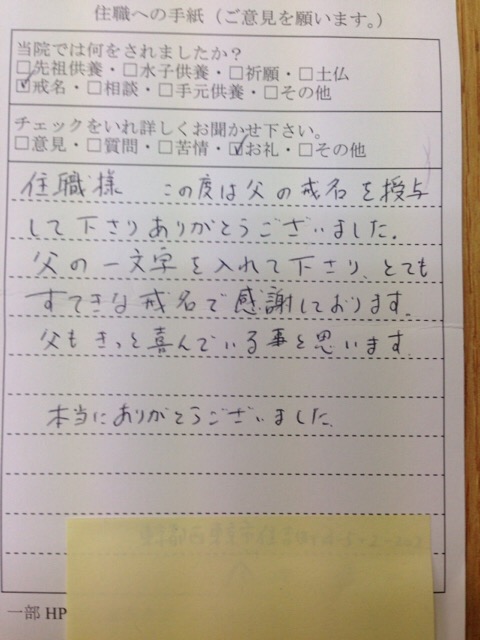 住職への手紙（ご意見を願います。）
当院では何をされましたか？
□先祖供養・□水子供養・□祈願・□土仏
☑戒名・□相談・□手元供養・□その他
チェックをいれ詳しくお聞かせ下さい。
□意見・□質問・□苦情・☑お礼・□その他
住職様　この度は父の戒名を授与
して下さりありがとうございました。
父の一文字を入れて下さり、とても
すてきな戒名で感謝しております。
父もきっと喜んでいる事と思います。
本当にありがとうございました。
一部 HP